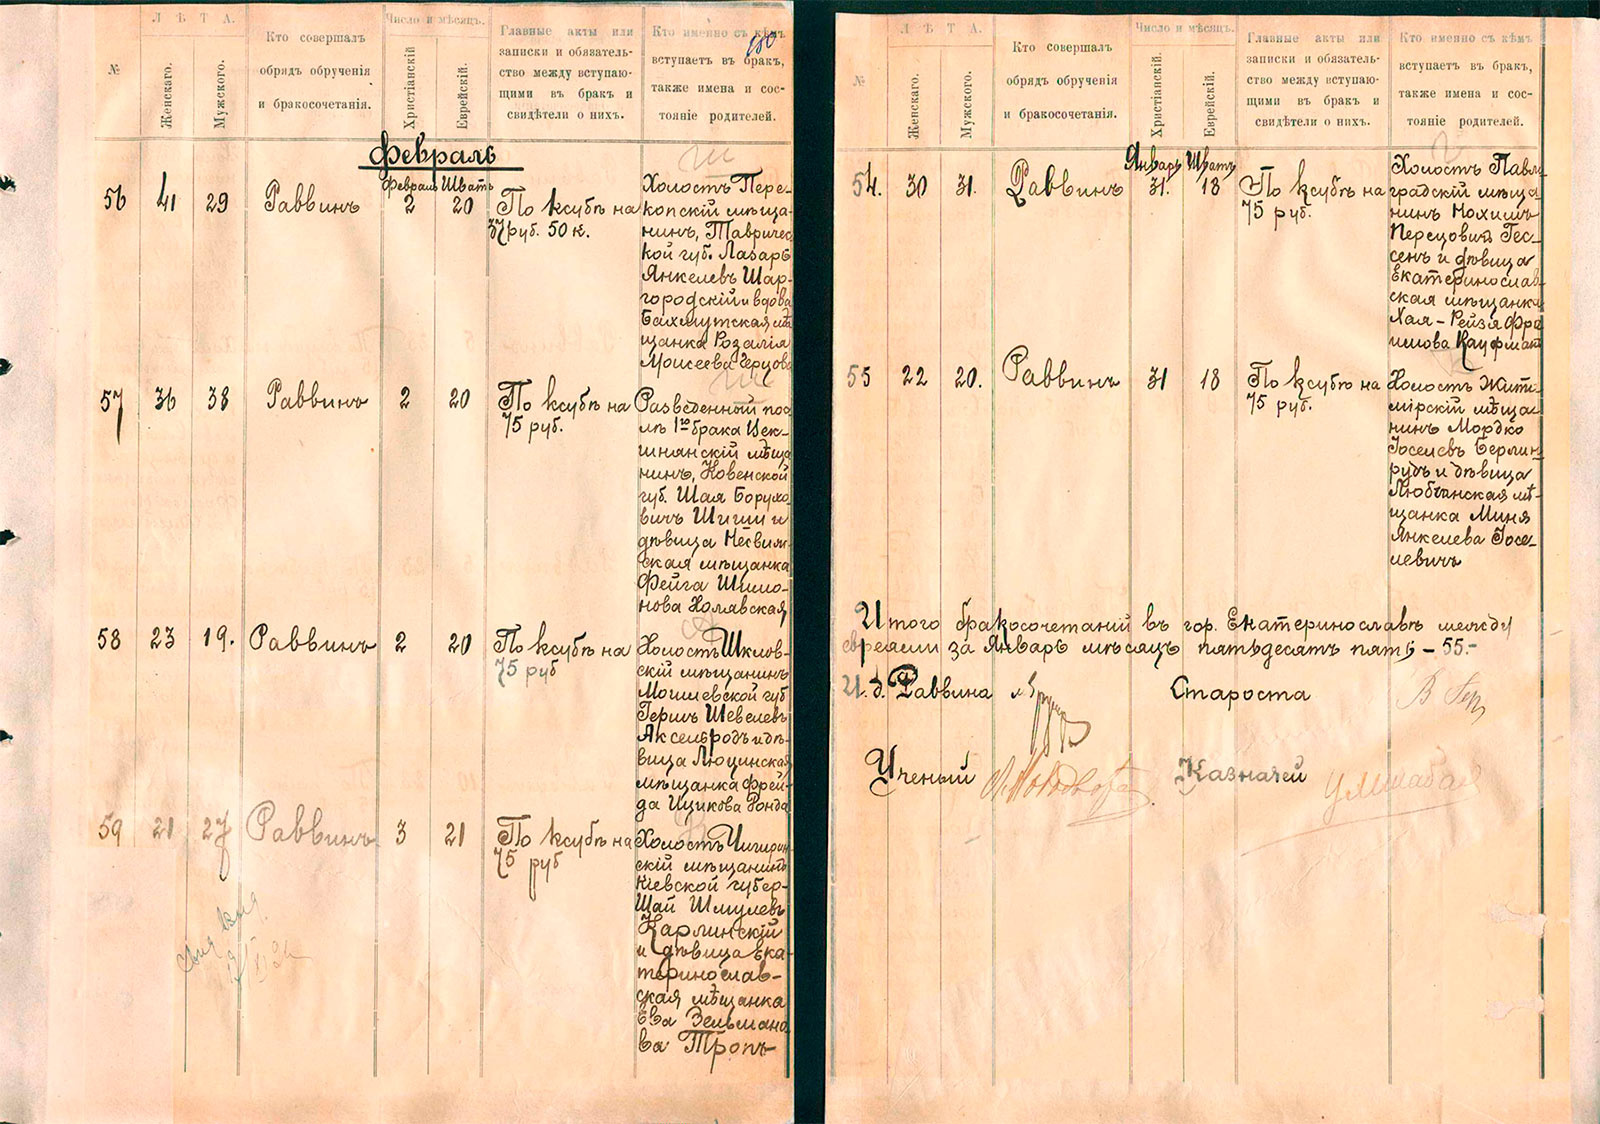 ЛѢТА.
Число и мѣсяцъ.
№
Женскаго.
Мужского.
Кто совершалъ
обрядъ обрученія
и бракосочетанія.
Христіанскій
Еврейскій.
Главные акты или
записки и обязатель-
ство между вступаю-
щими въ бракъ и
свидѣтели о нихъ.
Кто именно съ кѣмъ
вступаетъ въ бракъ,
также имена и сос-
тояніе родителей.
Февраль
Февраль Шватъ
56 41 29 Раввинъ 2 20
По ксубѣ на
37 руб. 50 к.
Холостъ Пере-
копскій мѣща-
нинъ, Тавричес
кой губ. Лазарь
Янкелевъ Шар-
городскій и вдова
Бахмутская мѣ
щанка Розалія
Моисеева Герцова
57 36 38 Раввинъ 2 20
По ксубѣ на
75 руб.
Разведенный пос
лѣ 1го брака Цек-
инянскій мѣща
нинъ, Ковенской
губ. Шая Борухо
вичъ Шиши и
дѣвица Несвиж-
ская мѣщанка
Фейга Шимо-
нова Холявская
58 23 19. Раввинъ 2 20
По ксубѣ на
75 руб
Холостъ Шклов-
скій мѣщанинъ
Могилевской губ
Гершъ Шевелевъ
Аксельродъ и дѣ-
вица Люцинская
мѣщанка Фрей-
да Ицикова Ронда
59 21 27 Раввинъ 3 21
По ксубѣ на
75 руб
Холостъ Чигирин
скій мѣщанинъ
Кіевской губер-
Шай Шмулевъ
Карлинскій
и дѣвица Ека-
теринослав-
ская мѣщанка
Ева Зельмано
ва Тропъ
ЛѢТА.
Число и мѣсяцъ.
№
Женскаго.
Мужского.
Кто совершалъ
обрядъ обрученія
и бракосочетанія.
Христіанскій.
Еврейскій.
Главные акты или
записки и обязатель-
ство между вступаю-
щими въ бракъ и
свидѣтели о нихъ.
Кто именно съ кѣмъ
вступаетъ въ бракъ,
также имена и сос-
тояніе родителей.
Январь Шватъ
54. 30 31. Раввинъ 31. 18
По ксубѣ на
75 руб.
Холостъ Павло
градскій мѣща
нинъ Нохимъ
Перецовичъ Гес-
сенъ и дѣвица
Екатеринослав-
ская мѣщанка
Хая-Рейзя Фра
имова Кауфманъ
55 22 20. Раввинъ 31 18
По ксубѣ на
75 руб.
Холостъ Жито
мірскій мѣща
нинъ Мордко
Іоселевъ Берлин-
рудъ и дѣвица
Любчанская мѣ-
щанка Миня
Янкелева Іосе-
левичъ
Итого бракосочетаній въ гор. Екатеринославѣ между
евреями за Январь мѣсяцъ пятьдесятъ пять – 55.–
И. д. Раввина Староста
Ученый Казначей